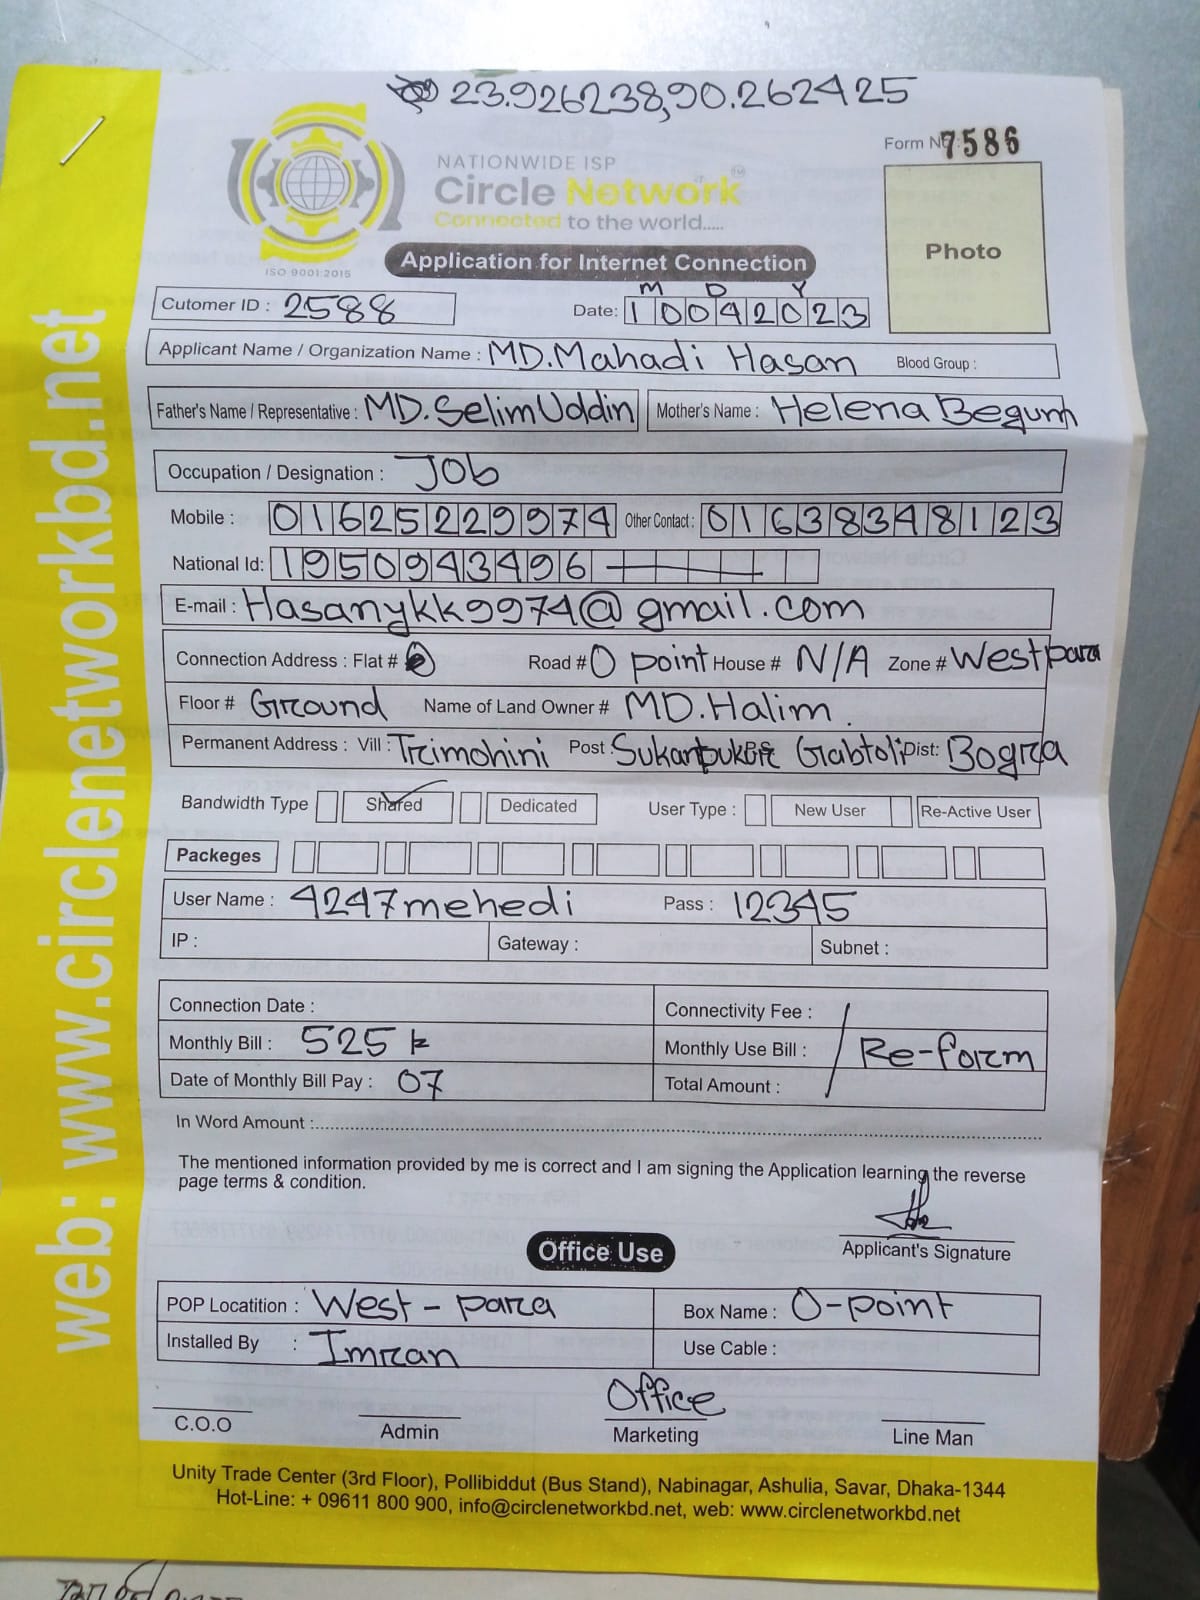 23.926238,90.262425
Form No: 7586
NATIONWIDE ISP
Circle Network
Connected to the world.....
ISO 9001:2015
Photo
Application for Internet Connection
M D Y
Cutomer ID : 2588 Date: 10042023
Applicant Name / Organization Name : MD.Mahadi Hasan Blood Group :
Father's Name / Representative : MD.Selim Uddin Mother's Name : Helena Begum
Occupation / Designation : Job
Mobile : 01625229974 Other Contact : 01638348123
National Id: 1950943496
E-mail : Hasanykk9974@gmail.com
Connection Address : Flat # Road # 0 point House # N/A Zone # Westpara
Floor # Ground Name of Land Owner # MD.Halim.
Permanent Address : Vill : Trimohini Post : Gabtoli Dist: Bogra
Bandwidth Type Shared Dedicated User Type : New User Re-Active User
Packeges
User Name : 4247mehedi Pass : 12345
IP : Gateway : Subnet :
Connection Date : Connectivity Fee :
Monthly Bill : 525 Monthly Use Bill : Re-form
Date of Monthly Bill Pay : 07 Total Amount :
In Word Amount :
The mentioned information provided by me is correct and I am signing the Application learning the reverse
page terms & condition.
Applicant's Signature
Office Use
POP Locatition : West-para Box Name : 0-point
Installed By : Imran Use Cable :
Office
C.O.O Admin Marketing Line Man
Unity Trade Center (3rd Floor), Pollibiddut (Bus Stand), Nabinagar, Ashulia, Savar, Dhaka-1344
Hot-Line: + 09611 800 900, info@circlenetworkbd.net, web: www.circlenetworkbd.net
web: www.circlenetworkbd.net